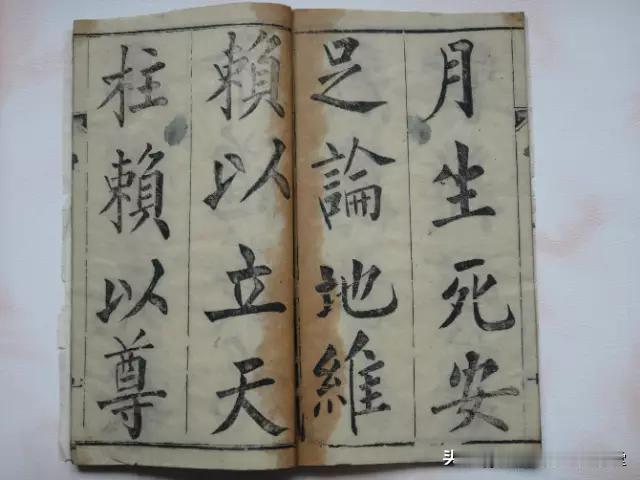 月生死安
足論地維
賴以立天
柱賴以尊
头